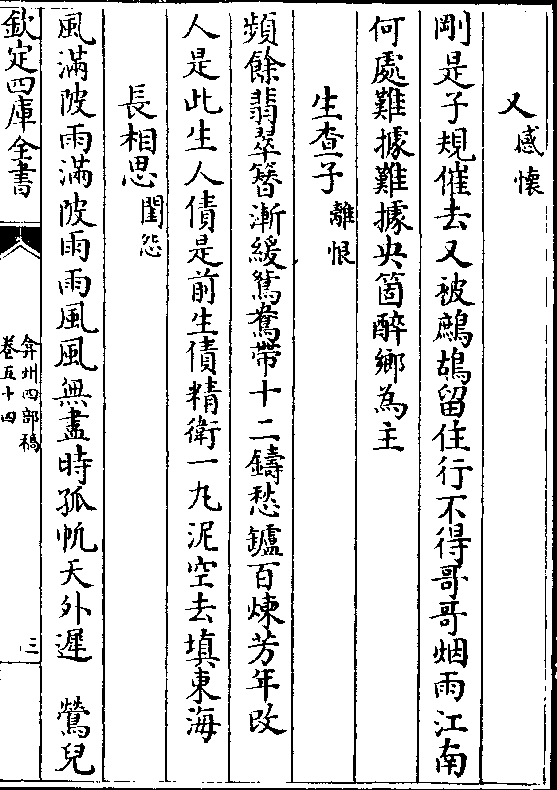 又感懷
剛是子規催去又被鷓鴣留住行不得哥哥烟雨江南
何處難據難據央箇醉鄉為主
生查子離恨
頻餘翡翠簪漸緩鴛鴦帶十二鑄愁鑪百煉芳年改
人是此生人債是前生債精衛一丸泥空去填東海
長相思閨怨
風滿陂雨滿陂雨雨風風無盡時孤帆天外遲　鶯兒
欽定四庫全書
弇州四部稿
卷五十四
三